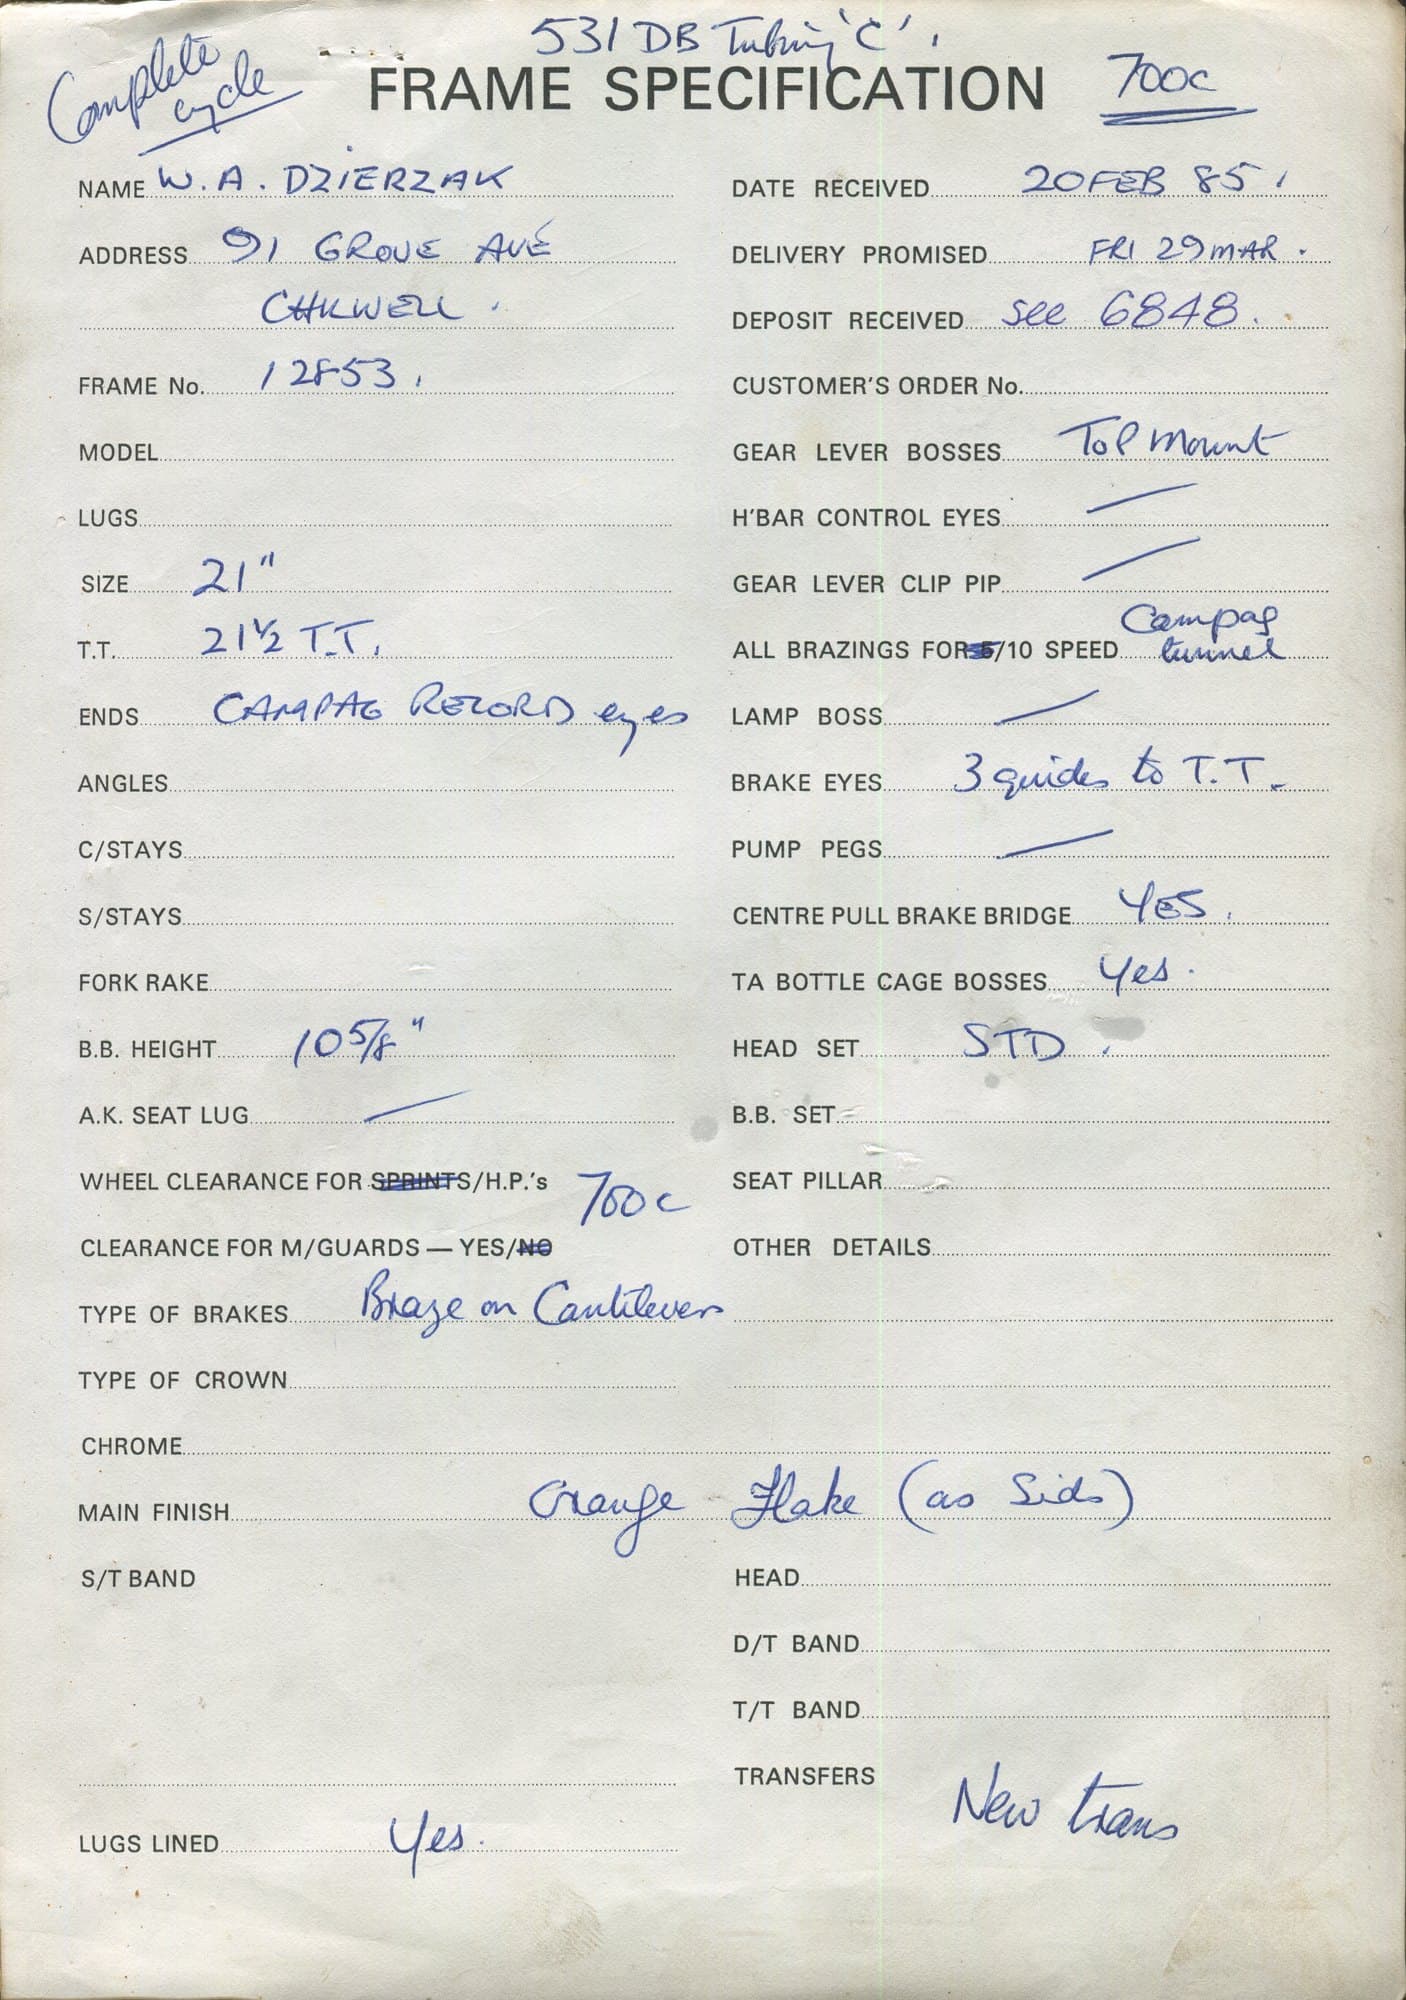 531 DB Tubing 'C'.
Complete cycle
FRAME SPECIFICATION
700c
NAME W. A. DZIERZAK
ADDRESS 91 GROVE AVE
CHIGWELL.
FRAME No. 12853.
MODEL
LUGS
SIZE 21"
T.T. 21½ T.T.
ENDS CAMPAG RECORD eyes
ANGLES
C/STAYS
S/STAYS
FORK RAKE
B.B. HEIGHT 10 5/8"
A.K. SEAT LUG —
WHEEL CLEARANCE FOR SPRINTS/H.P.'s 700c
CLEARANCE FOR M/GUARDS — YES/NO
TYPE OF BRAKES Braze on Cantilevers
TYPE OF CROWN
CHROME
MAIN FINISH Orange Flake (as Sids)
S/T BAND
LUGS LINED Yes.
DATE RECEIVED 20 FEB 85.
DELIVERY PROMISED FRI 29 MAR.
DEPOSIT RECEIVED see 6848.
CUSTOMER'S ORDER No.
GEAR LEVER BOSSES TOP Mount
H'BAR CONTROL EYES —
GEAR LEVER CLIP PIP —
ALL BRAZINGS FOR 5/10 SPEED Campag tunnel
LAMP BOSS —
BRAKE EYES 3 guides to T.T.
PUMP PEGS —
CENTRE PULL BRAKE BRIDGE YES.
TA BOTTLE CAGE BOSSES Yes.
HEAD SET STD.
B.B. SET
SEAT PILLAR
OTHER DETAILS
HEAD
D/T BAND
T/T BAND
TRANSFERS New trans